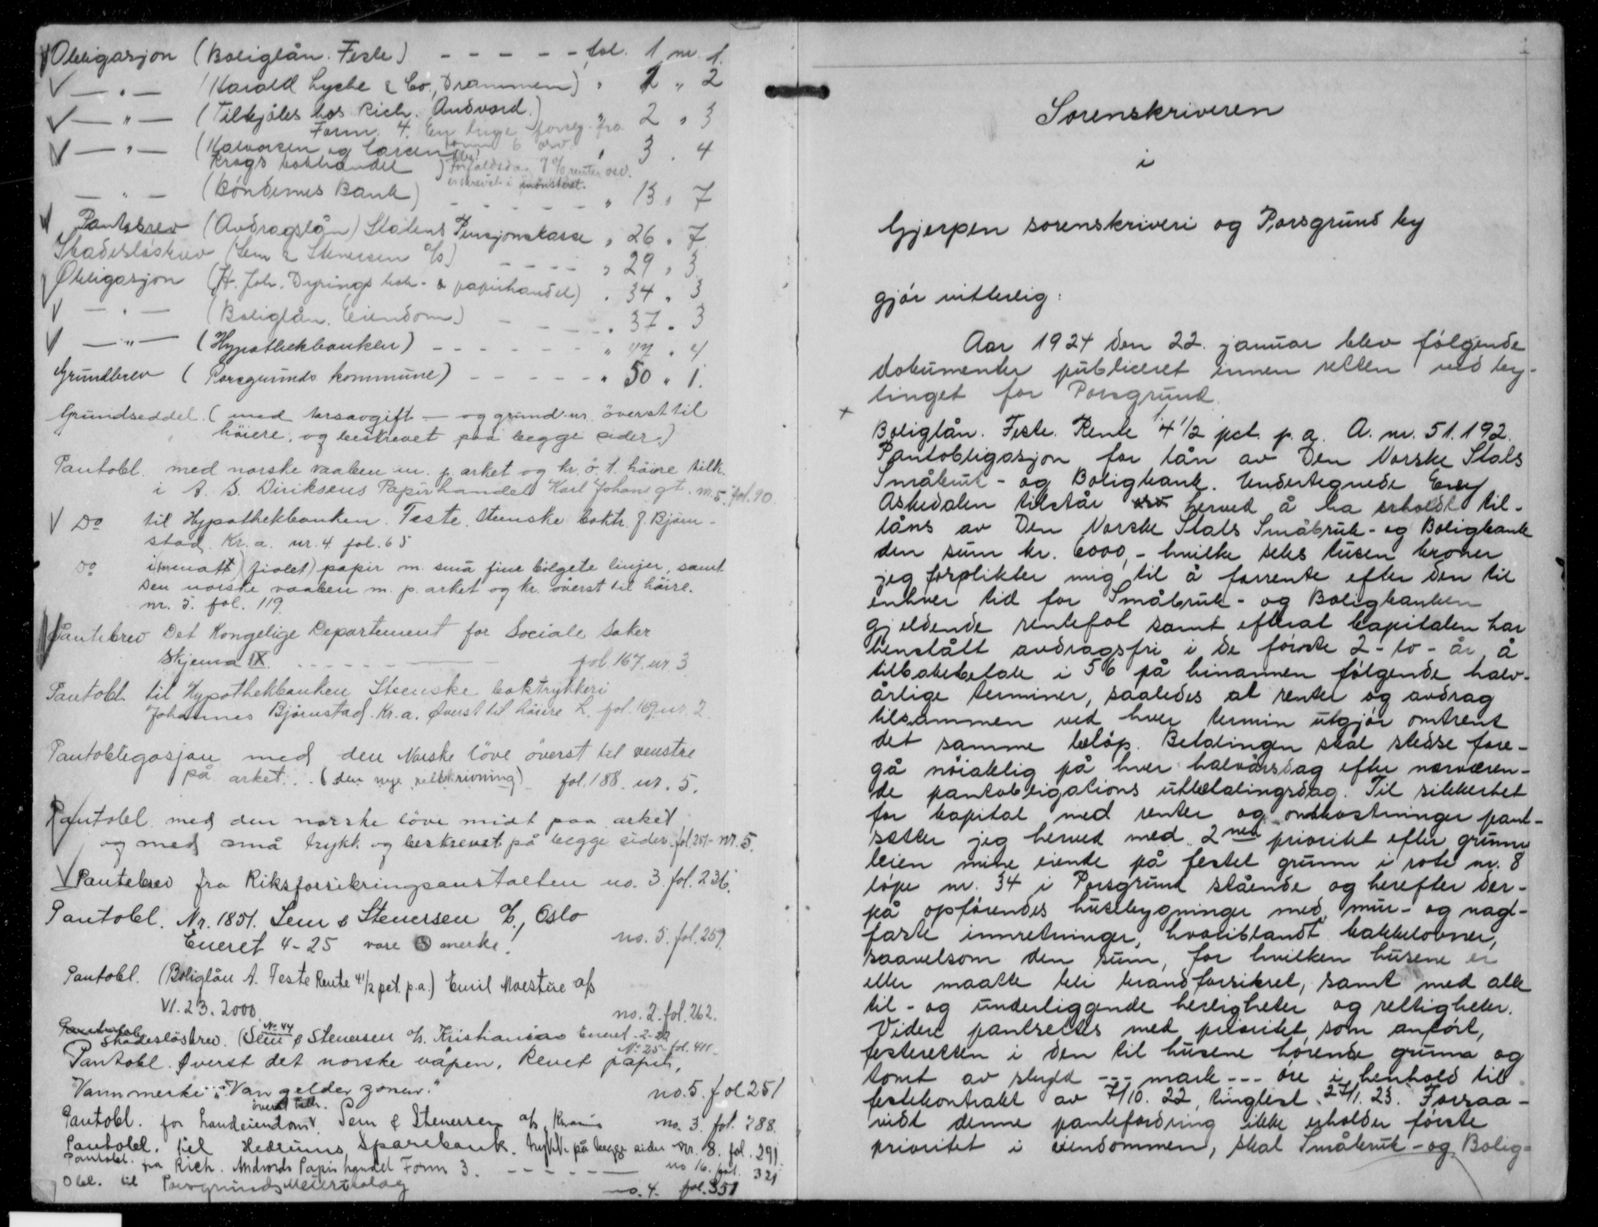 Obligasjon (Boliglån. Feste) - - - - - fol. 1 nr. 1.
— " — (Harald Lyche & Co, Drammen) " 1 " 2
— " — (Tilkjöles hos Rich. Andvord.) " 2 " 3
Form. 4. En linje forrig. fra
— " — (Halvorsen og Larsen " 3 . 4
Krogs bokhandel) forfaldsdag 7% renter osv.
er skrevet i mönsteret.
— " — (Böndernes Bank) - - - - - " 13 " 7
Pantebrev (Avdragslån) Statens Pensjonskasse " 26 " 7
Skadeslösbrev (Sem & Stenersen A/S) - - - - " 29 " 3
Obligasjon (H. Joh. Dyrings bok- & papirhandel) " 34 " 3
— " — (Boliglån. Eiendom) - - - - " 37 " 3
— " — (Hypothekbanken) - - - - - " 47 " 4
Grundbrev (Porsgrunds kommune) - - - - - " 50 " 1.
Grundseddel. (med aarsavgift — og grund.nr. överst til
höiere, og beskrevet paa begge sider.)
Pantobl. med norske vaaben m. p. arket og kr. ö. t. höire tilk.
i A. S. Diriksens Papirhandel Karl Johans gt. nr. 5. fol. 90
Do til Hypothekbanken. Feste. Steenske boktr. J. Bjørn-
stad. Kr.a. nr. 4 fol. 65
do immatt (fiolet) papir m. små fine bölgete linjer, samt
den norske vaaben m. p. arket og kr. överst til höire.
nr. 5. fol. 119.
Pantebrev Det Kongelige Departement for Sociale saker
Skjema IX. - - - - fol. 167. nr 3
Pantobl. til Hypothekbanken Steenske boktrykkeri
Johannes Björnstad. Kr.a. Överst til höire L. fol. 169 nr. 2.
Pantobligasjon med den Norske löve överst til venstre
på arket... (den nye rettskrivning) fol. 188. nr. 5.
Pantobl. med den norske löve midt paa arket
og med små trykk. og beskrevet på begge sider. fol. 251- nr. 5.
Pantebrev fra Riksforsikringsanstalten no. 3. fol. 236.
Pantobl. Nr. 1851. Sem & Stenersen A/S, Oslo
Eneret 4-25 vare S merke. no. 5. fol. 259.
Pantobl. (Boliglån A. Feste Rente 4 1/2 pct. p.a.) Emil Moestue A/S
VI. 23. 2000. no. 2. fol. 262.
Skadeslösbrev. (Nr. 44 Sem & Stenersen A/S. Kristiania Eneret -2-22
Nr. 25 - fol. 411-
Pantobl. Överst det norske våpen, Revet papir,
Vannmerke: "Van gelder zonen." no. 5. fol 251
överst tilh.
Pantobl. for landeiendom. Sem & Stenersen A/S Krania no. 3. fol. 288.
Pantobl. til Hedrums Sparebank. trykk på begge sider nr. 8. fol. 291
Pantobl. fra Rich. Andvords Papirhandel Form 3. - - - - - no 16. fol. 321
Obl. til Porsgrunds Meierselag no. 4. fol. 351
Sorenskriveren
i
Gjerpen sorenskriveri og Porsgrund by
gjör vitterlig:
Aar 1924 den 22. januar blev fölgende
dokumenter publiceret innen retten ved by-
tinget for Porsgrund.
Boliglån. Feste. Rente 4 1/2 pct. p.a. A. nr. 51.192.
Pantobligasjon for lån av Den Norske Stats
Småbruk- og Boligbank. Undertegnede Eney
Askedalen tilstår herved å ha erholdt til-
låns av Den Norske Stats Småbruk- og Boligbank
den sum kr. 6000,- hvilke seks tusen kroner
jeg forplikter mig til å forrente efter den til
enhver tid for Småbruk- og Boligbanken
gjeldende rentefot samt efterat kapitalen har
henstått avdragsfri i de förste 2 - to - år, å
tilbakebetale i 56 på hinannen fölgende halv-
årlige terminer, saaledes at renter og avdrag
tilsammen ved hver termin utgjör omtrent
det samme belöp. Betalingen skal stedse fore-
gå nöiaktig på hver halvårsdag efter nærværen-
de pantobligations utbetalingsdag. Til sikkerhet
for kapital med renter og omkostninger pant-
setter jeg herved med 2nen prioritet efter grunn-
leien mine eiende på festet grunn i rode nr. 8
löpe nr. 34 i Porsgrund stående og herefter der-
på opförendes husebygninger med mur- og nagl-
faste innretninger, hvoriblandt kakkelovner,
saavelsom den sum, for hvilken husene er
eller maatte bli brandforsikret, samt med alle
til- og underliggende herligheter og rettigheter.
Videre pantsettes med prioritet, som anfört,
festeretten i den til husene hörende grunn og
tomt av skyld --- mark --- öre i henhold til
festekontrakt av 7/10. 22, tinglest 27/1. 23. Forsaa-
vidt denne pantefordring ikke erholder förste
prioritet i eiendommen, skal Småbruk- og Bolig-